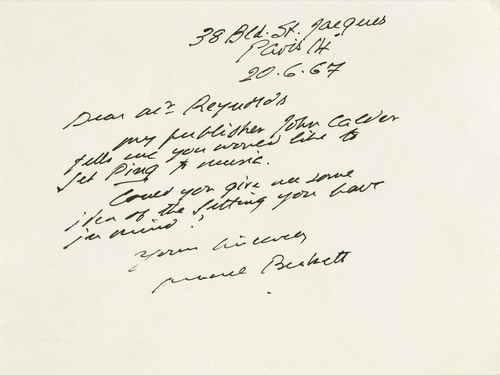 38 Bld. St. Jacques
Paris 14e
20.6.67
Dear Mr Reynolds
my publisher John Calder
tells me you would like to
set Ping to music.
Could you give me some
idea of the setting you have
in mind?
Yours sincerely
Samuel Beckett